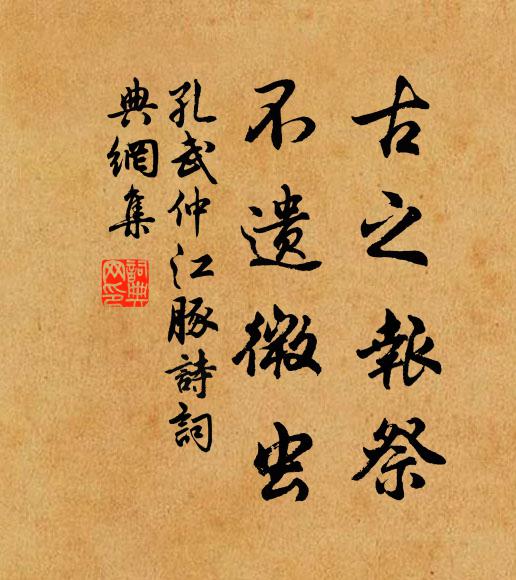 古之報祭
不遺微虫
孔武仲江豚詩詞
典網集
詞典網印